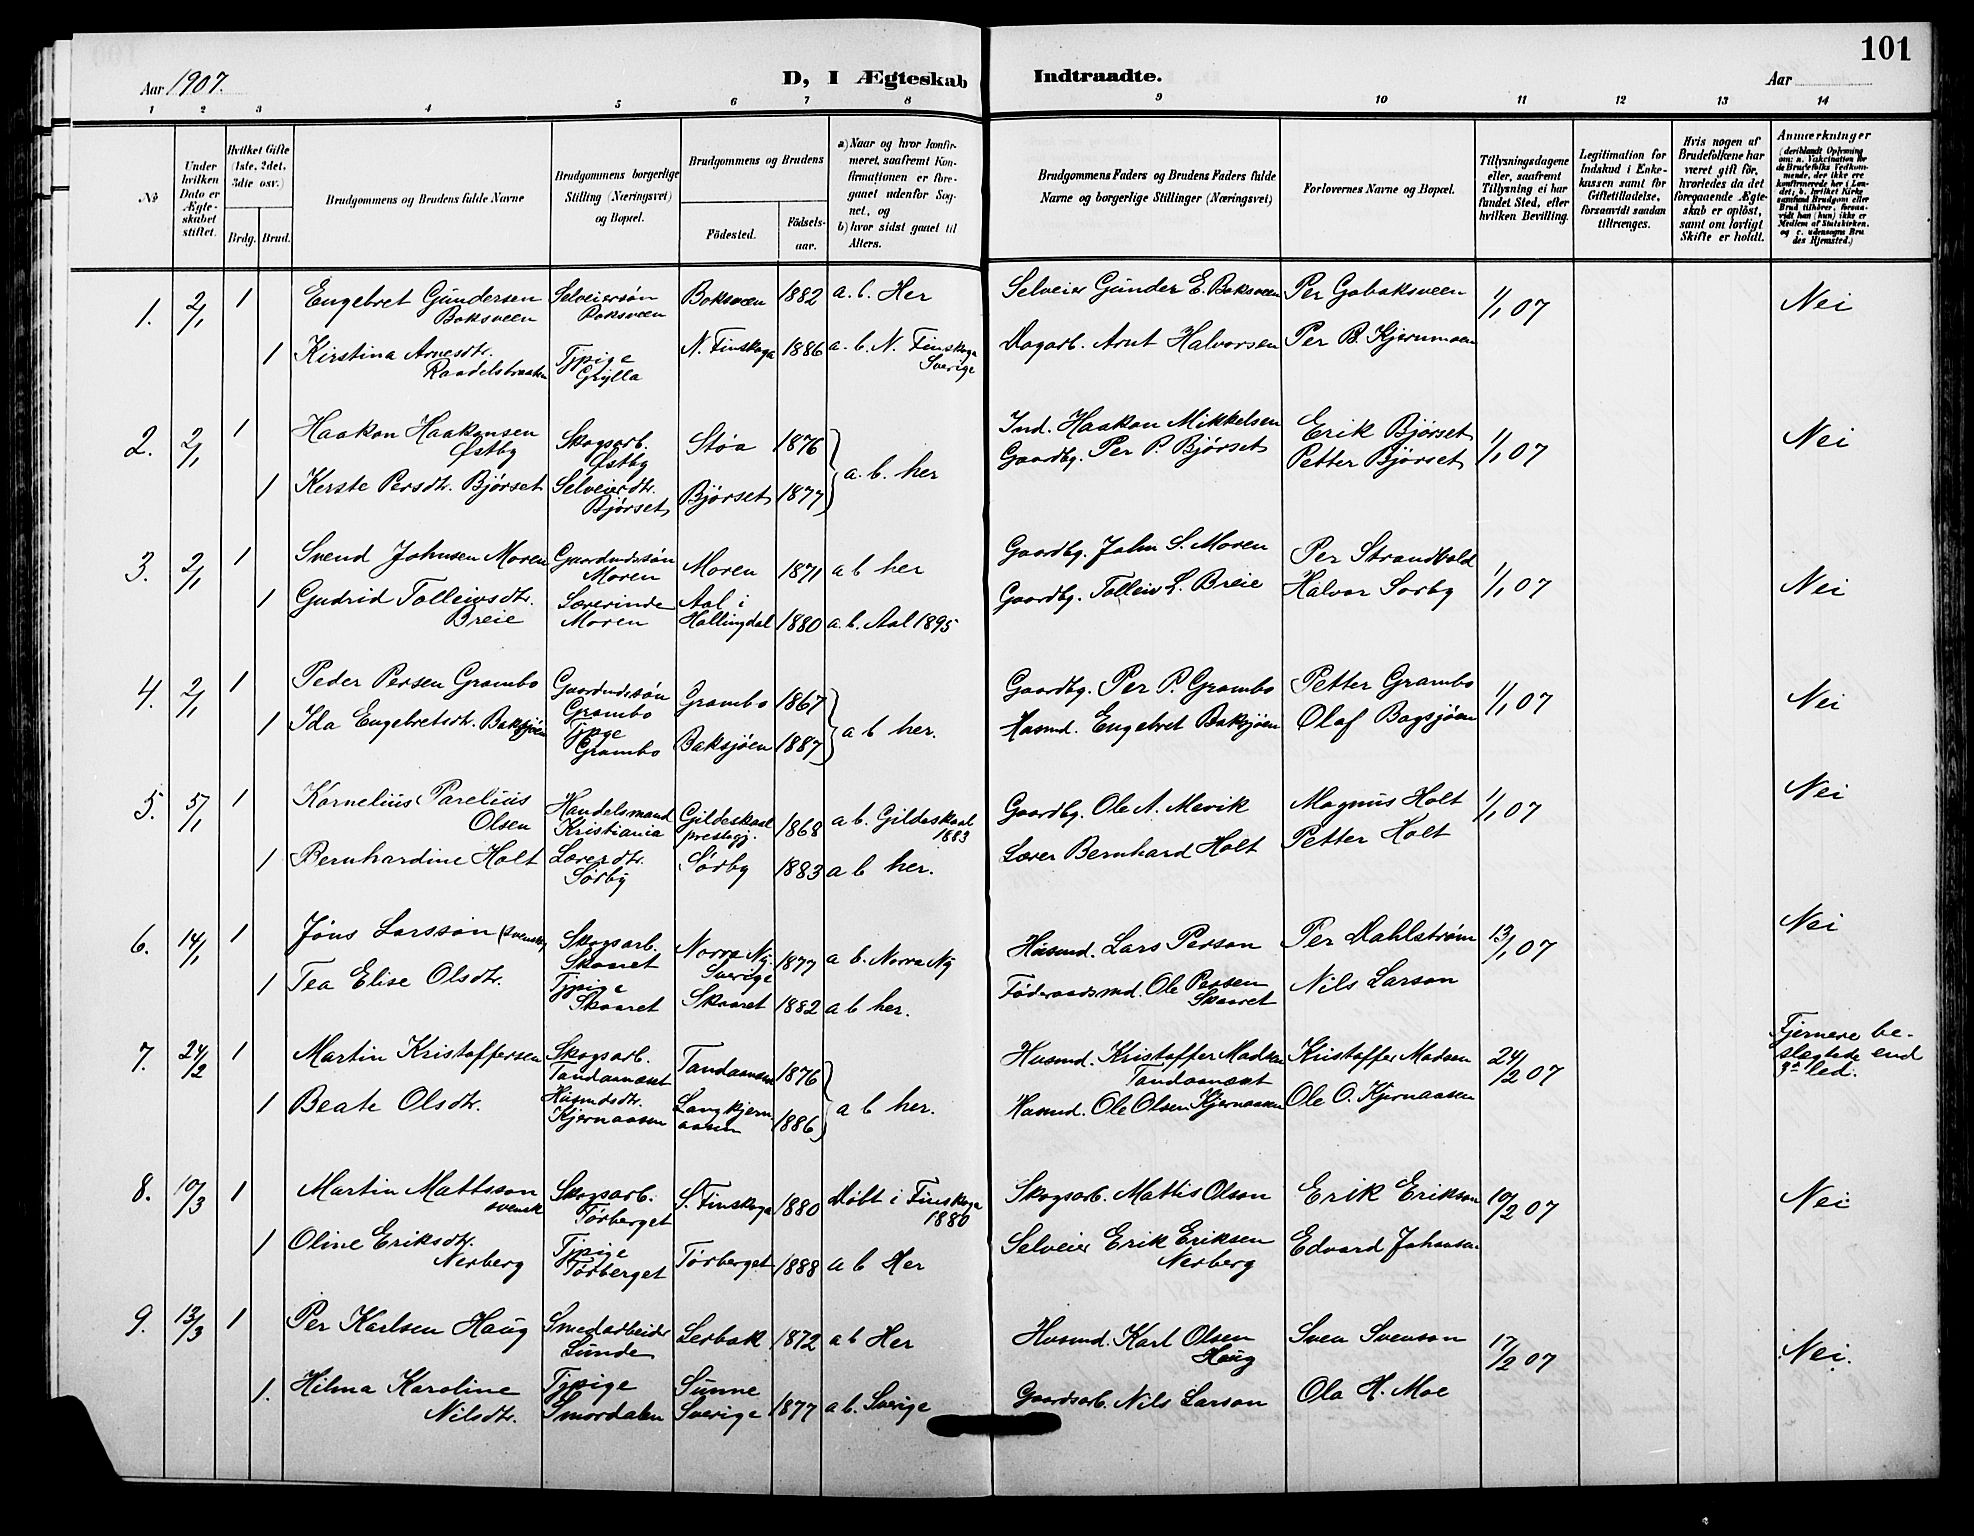 101
Aar 1907. D, I Ægteskab Indtraadte. Aar
1 2 3 4 5 6 7 8 9 10 11 12 13 14
No
Under hvilken Dato er Ægteskabet stiftet.
Hvilket Gifte (1ste, 2det, 3die osv.)
Brdg. Brud.
Brudgommens og Brudens fulde Navne
Brudgommens borgerlige Stilling (Næringsvei) og Bopæl.
Brudgommens og Brudens
Födested. Födselsaar.
a) Naar og hvor konfirmeret, saafremt Konfirmationen er foregaaet udenfor Sognet, og
b) hvor sidst gaaet til Alters.
Brudgommens Faders og Brudens Faders fulde Navne og borgerlige Stillinger (Næringsvei)
Forlovernes Navne og Bopæl.
Tillysningsdagene eller, saafremt Tillysning ei har fundet Sted, efter hvilken Bevilling.
Legitimation for Indskud i Enkekassen samt for Giftetilladelse, forsaavidt saadan tiltrænges.
Hvis nogen af Brudefolkene har været gift før, hvorledes da det foregaaende Ægteskab er opløst, samt om lovligt Skifte er holdt.
Anmærkninger
(deriblandt Oplysning om: a. Vakcination for de Brudefolks Vedkommende, der ikke ere konfirmerede her i Landet; b. hvilket Kirkesamfund Brudgom eller Brud tilhører, forsaavidt han (hun) ikke er Medlem af Statskirken, og c. udensogns Brudes Hjemsted.)
1. 2/1 1 Engebret Gundersen Boksveen Selveiersøn Boksveen Boksveen 1882 a. b. Her Selveier Gunder E. Boksveen Per Goboksveen 1/1 07 Nei
1 Kirstina Arnesdtr. Raadelsbraaten Tjpige Grylla N. Finskoga 1886 a. b. N. Finskoga Sverige Dagarb. Arnt Halvorsen Per B. Kjernmoen
2. 2/1 1 Haakon Haakonsen Østby Skogsarb. Østby Støa 1876 a. b. her Ind. Haakon Mikkelsen Erik Bjørset 1/1 07 Nei
1 Kerste Persdtr. Bjørset Selveierdtr. Bjørset Bjørset 1877 Gaardbg. Per P. Bjørset Petter Bjørset
3. 2/1 1 Svend Johnsen Moren Gaardmdssøn Moren Moren 1871 a b her Gaardbg. John S. Moren Per Strandvold 1/1 07 Nei
1 Gudrid Tolleivsdtr. Breie Lærerinde Moren Aal i Hallingdal 1880 a. b. Aal 1895 Gaardbg. Tolleiv L. Breie Halvor Sorby
4. 2/1 1 Peder Persen Grambo Gaardmdssøn Grambo Grambo 1867 a b her. Gaardbg. Per P. Grambo Petter Grambo 1/1 07 Nei
1 Ida Engebretsdtr. Baksjøen Tjpge Grambo Baksjøen 1887 Husmd. Engebret Baksjøen Olaf Bagsjøen
5. 5/1 1 Kornelius Parelius Olsen Handelsmand Kristiania Gildeskaal prestegj. 1868 a b. Gildeskaal 1883 Gaardbg. Ole A. Mevik Magnus Holt 1/1 07 Nei
1 Bernhardine Holt Lærerdtr. Sørby Sørby 1883 a b her. Lærer Bernhard Holt Petter Holt
6. 14/1 1 Jöns Larsson (svensk) Skogsarb. Skaaret Norra Ny. Sverige 1877 a b. Norra Ny Husmd. Lars Person Per Dahlstrøm 13/1 07 Nei
1 Tea Elise Olsdtr. Tjpige Skaaret Skaaret 1882 a b her. Føderaadsmd. Ole Persen Skaaret Nils Larson
7. 24/2 1 Martin Kristoffersen Skogsarb. Tandaanæset Tandaanæset 1876 a b her. Husmd. Kristoffer Madsen Tandaanæset Kristoffer Madsen 24/2 07 Fjernere beslegtede end 3die led.
1 Beate Olsdtr. Husmdsdtr. Kjernaasen Langkjernaasen 1886 Husmd. Ole Olsen Kjernaasen Ole O. Kjernaasen
8. 10/3 1 Martin Mattsson svensk Skogsarb. Tørberget S. Finskoga 1880 Døbt i Finskoga 1880 Skogsarb. Mattis Olson Erik Erikson 10/2 07 Nei
1 Oline Eriksdtr. Nerberg Tjpige Tørberget Tørberget 1888 a b Her Selveier Erik Eriksen Nerberg Edvard Johansen
9. 13/3 1 Per Karlsen Haug Smedarbeider Sunde Lerbak 1872 a b Her Husmd. Karl Olsen Haug Sven Svenson 17/2 07 Nei.
1. Hilma Karoline Nilsdtr. Tjpige Smordalen Sunne Sverige 1877 a b. Sverige Gaardsarb. Nils Larson Ola H. Moe